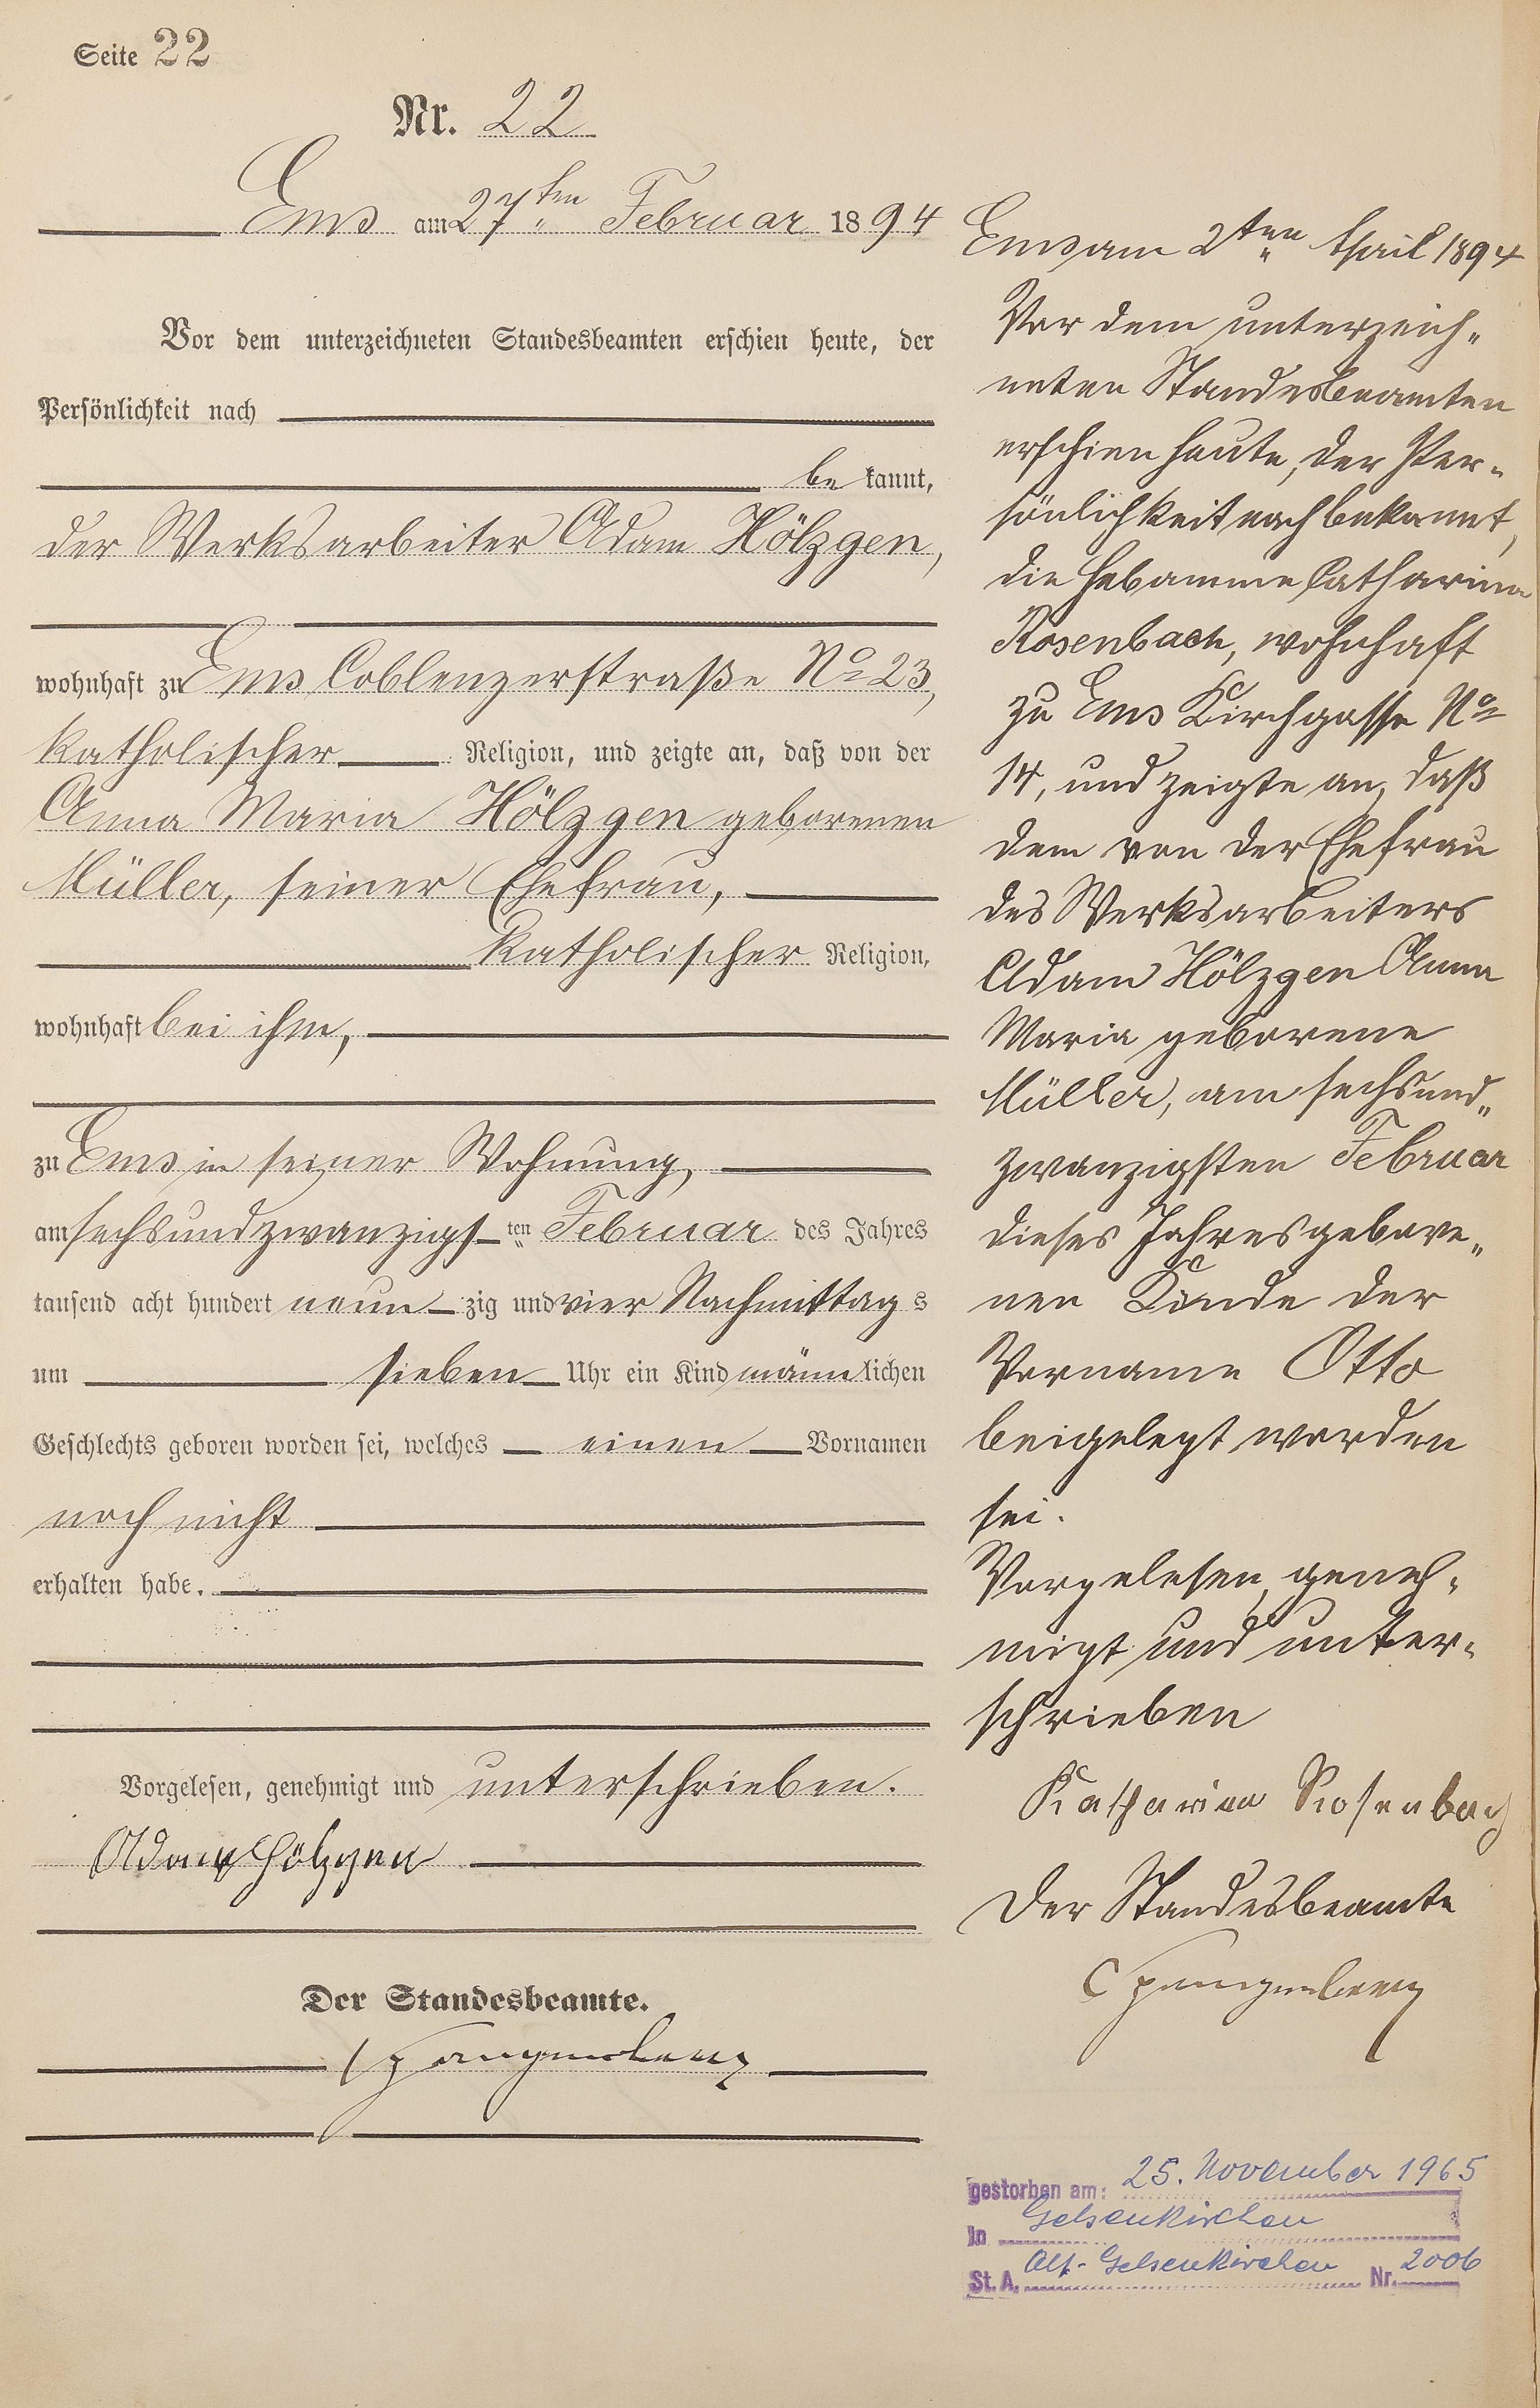 Seite 22
Nr. 22
Ems am 27ten Februar 1894
Vor dem unterzeichneten Standesbeamten erschien heute, der
Persönlichkeit nach
be kannt,
der Werksarbeiter Adam Hölzgen,
wohnhaft zu Ems Coblenzerstraße No 23,
katholischer Religion, und zeigte an, daß von der
Anna Maria Hölzgen geborenen
Müller, seiner Ehefrau,
katholischer Religion,
wohnhaft bei ihm,
zu Ems in seiner Wohnung,
am sechsundzwanzigs ten Februar des Jahres
tausend acht hundert neun zig und vier Nachmittag s
um sieben Uhr ein Kind männ lichen
Geschlechts geboren worden sei, welches einen Vornamen
noch nicht
erhalten habe.
Vorgelesen, genehmigt und unterschrieben.
Adam Hölzgen
Der Standesbeamte.
Spangenberg
Ems am 2ten April 1894
Vor dem unterzeich-
neten Standesbeamten
erschien heute, der Per-
sönlichkeit nach bekannt,
die Hebamme Catharina
Rosenbach, wohnhaft
zu Ems Kirchgasse No
14, und zeigte an, daß
dem von der Ehefrau
des Werksarbeiters
Adam Hölzgen Anna
Maria geborene
Müller, am sechsund-
zwanzigsten Februar
dieses Jahres gebore-
nen Kinde der
Vorname Otto
beigelegt worden
sei.
Vorgelesen, geneh-
migt und unter-
schrieben
Katharina Rosenbach
Der Standesbeamte
Spangenberg
gestorben am: 25. November 1965
In Gelsenkirchen
St. A. Alt-Gelsenkirchen Nr. 2006